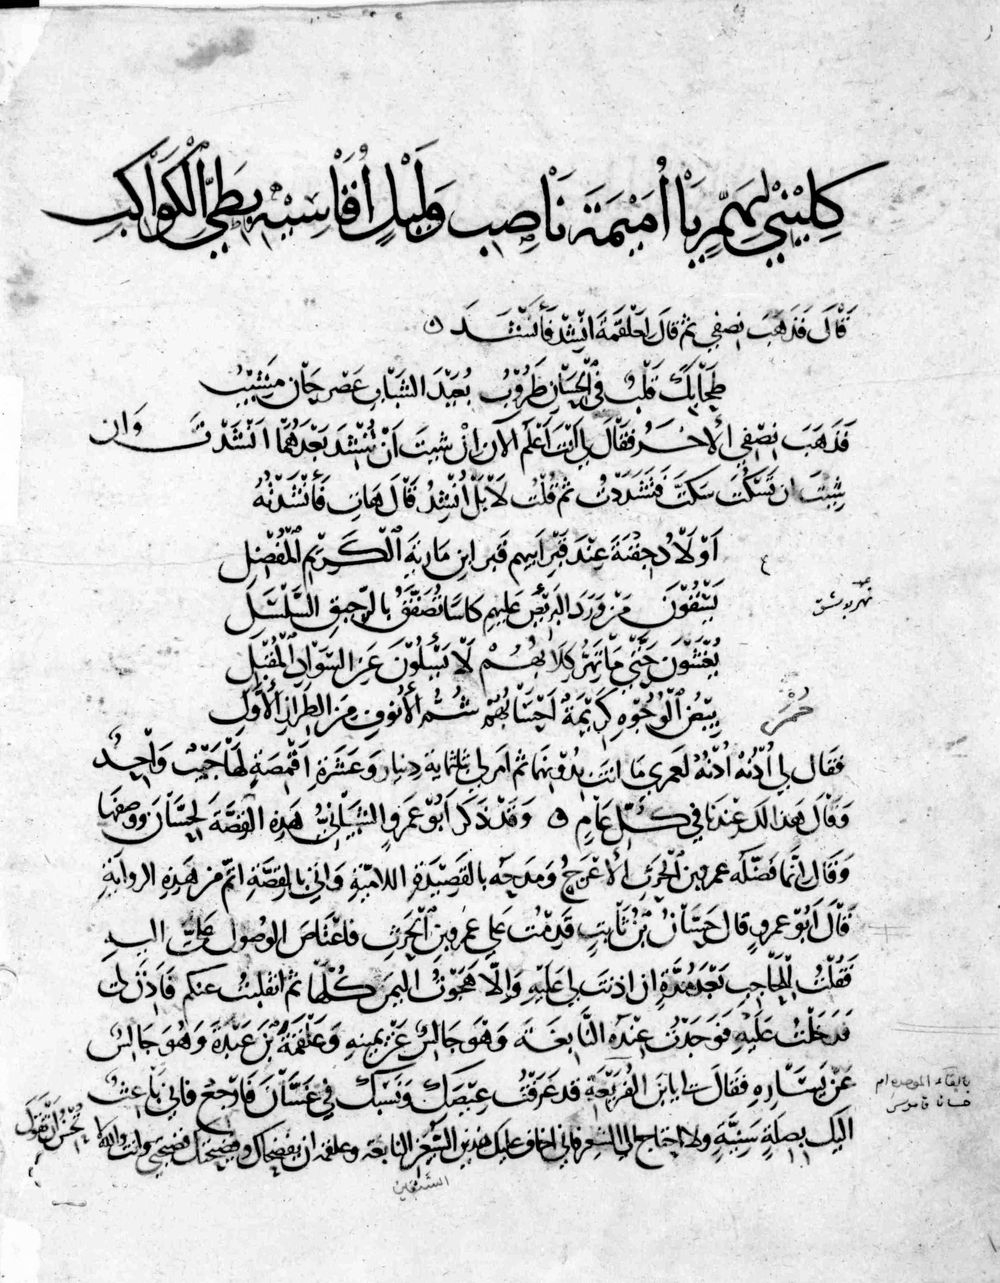 كِلِيْنِيْ لِهَمٍّ يَاْ أُمَيْمَةَ نَاْصِبِ وَلَيْلٍ أُقَاْسِيْهِ بَطِيِّ الْكَوَاْكِبِ
قَاْلَ فَذَهَبَ نصفي ثم قالَ لعَلْقَمَةَ انْشِدْ فَأَنْشَدَ ۞
طَحَاْبِكَ قَلْبٌ فِي الْحِسَانِ طَرُوْبُ بُعَيْدَ الشَّبَابِ عَصْرَ حَانَ مَشِيْبُ
فَذَهَبَ نِصْفِي الْآخَرُ فقَالَ لي اَنْتَ اَعْلَم الآنَ اِنْ شِيتَ اَنْ تُنْشِدَ بَعْدَهُمَا اَنْشَدْتَ وَان
شِيتَ ان تَسْكُتَ سَكَتَّ فَتَشَدَّدْتُ ثم قُلْتُ لَاْ بَلْ اُنْشِدُ قَاْلَ هَاتِ فَأَنْشَدْتُهُ
اَوْلَاْدُ جَفْنَةَ عِنْدَ قَبْرِ اَبِيهِم قَبر ابنِ مَارِيَةِ الْكَرِيْمِ الْمُفْضِلِ
يَسْقُوْنَ مَنْ وَرَدَ الْبَرِيْصَ عَلَيهِم كاسًا تُصَفَّقُ بالرّحِيقِ السَّلْسَلِ
نهر بدمشق
يُغْشَوْنَ حَتّى مَا تَهِرُّ كِلَابُهُمْ لَاْ يَسْأَلُوْنَ عَنِ السَّوَادِ الْمُقْبِلِ
بِيْضُ الْوُجُوْهِ كَرِيْمَةٌ اَحْسَابُهُمْ شُمُّ الْأُنُوفِ مِنَ الطِّرَازِ الْأَوَّلِ
فقَال لي اُدْنُهْ اُدْنُهْ لَعمري مَا انتَ بِدُوْنِهِمَا ثم امر لي بثلثماية دِينار وَعَشَرَةِ اَقْمِصَةٍ لَهَا جَيْبٌ وَاْحِدٌ
وَقَالَ هَذا لك عندَنا في كُلِّ عَامٍ ۞ وَقَدْ ذَكَرَ اَبُوْ عَمْرٍو الشَّيْبَاْنِيُّ هَذِهِ القِصَّةَ لِحَسَّانَ وَوَصَفَهَا
وَقَالَ انَّمَا فَضَّلَهُ عمرو بن الْحَرِثِ الْأَعْرَجُ وَمَدحَه بالقَصِيْدَةِ اللاميّةِ وَاَتى بالقِصَّةِ اتمّ مِن هَذِهِ الروايَةِ
قَاْلَ اَبُوْ عمرو قال حَسَّاْنُ بْنُ ثَاْبِتٍ قَدِمْتُ عَلى عَمرو بن الْحَرِثِ فاعْتَاصَ الوصُول عَلَيَّ اليهِ
فَقُلْتُ لِلْحَاجِبِ بَعْدَ مُدَّةٍ ان اَذِنتَ لي عَلَيْهِ وَإِلّا هَجَوْتُ اليَمنَ كُلَّهَا ثم انقلبتُ عنكم فَاَذِنَ لي
فَدَخَلْتُ عَلَيْهِ فَوَجَدْتُ عِنْدَهُ النَّابِغَةَ وَهُوَ جَالسٌ عَنْ يَمينِهِ وَعَلْقَمَةَ بْنَ عَبْدَةَ وَهُوَ جَالسٌ
عَنْ يَسَارِهِ فَقَالَ يا ابنَ الفُرَيْعَةِ قد عَرَفْتُ عِيصَكَ وَنَسَبَكَ في غَسَّانَ فَارْجِعْ فاني بَاعِثٌ
اليك بصِلَةٍ سَنِيَّةٍ ولا احتاج الى الشعر فاني اخاف عليك هَذين السَّبُعَيْنِ النابغة وعلقمة ان يفضحاك وفضيحتك فضيحتي وانت والله لا تحْسنُ ان تقوْلَ